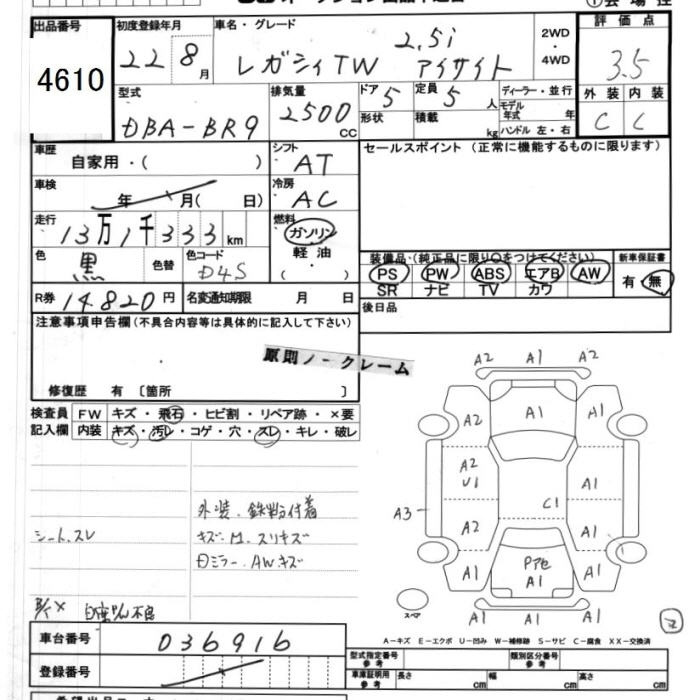 出品番号 4610
初度登録年月 22 8月
車名・グレード 2.5i
レガシィTW アイサイト
2WD・4WD
評価点 3.5
外装 内装
C C
型式 DBA-BR9
排気量 2500 CC
ドア 5 定員 5人
形状 積載 kg
ディーラー・並行
モデル年式 年
ハンドル 左・右
車歴 自家用・( )
シフト AT
セールスポイント (正常に機能するものに限ります)
車検 年 月( 日)
冷房 AC
走行 13万1千333km
燃料 ガソリン
軽油
・( )
色 黒 色替 色コード D4S
装備品(純正品に限り○をつけてください)
PS PW ABS エアB AW
SR ナビ TV カワ
新車保証書
有・無
R券 14.820円 名変通知期限 月 日
後日品
注意事項申告欄(不具合内容等は具体的に記入して下さい)
原則ノークレーム
修復歴 有 〔箇所 〕
検査員 FW キズ・飛石・ヒビ割・リペア跡・×要
記入欄 内装 キズ・汚レ・コゲ・穴・スレ・キレ・破レ
外装、鉄粉付着
シート、スレ
キズ・凹、スリキズ
Dミラー、AWキズ
A2 A1 A2
A2 A1 A1
A2
U1 A1
C1
A3
A2 A1
Pアセ
A1 A1 A1
A1 A1 A1
スペア
A-キズ E-エクボ U-凹み W-補修跡 S-サビ C-腐食 XX-交換済
車台番号 036916
登録番号
型式指定番号 参考
類別区分番号 参考
車庫証明用 参考 長さ cm 幅 cm 高さ cm